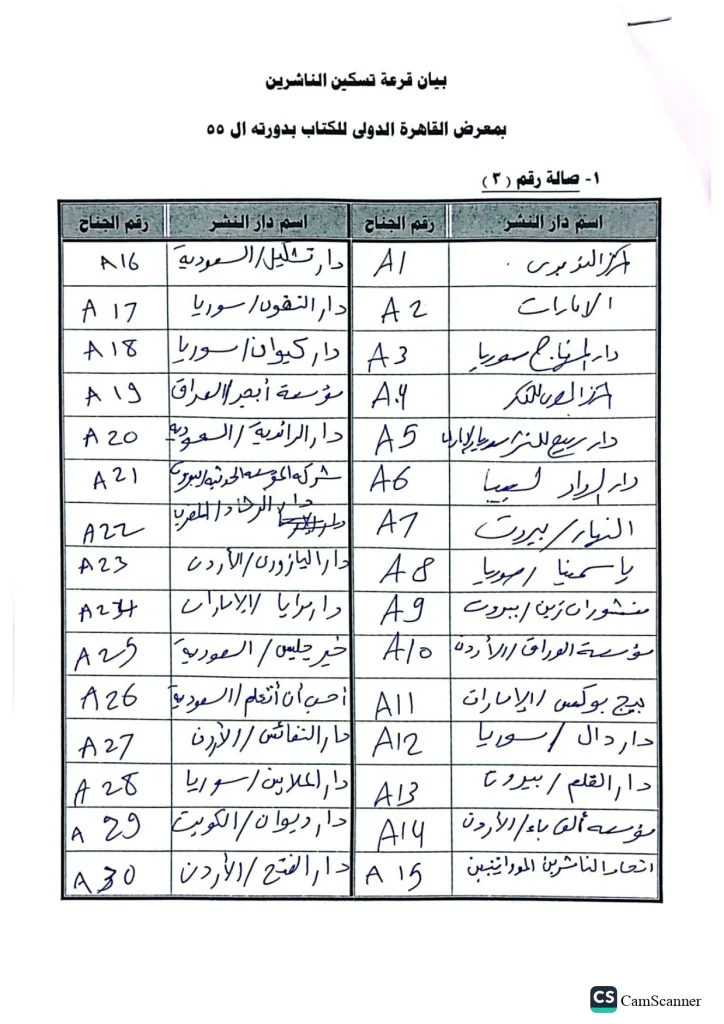 بيان قرعة تسكين الناشرين
بمعرض القاهرة الدولى للكتاب بدورته ال ٥٥
١- صالة رقم (٣)
اسم دار النشر رقم الجناح اسم دار النشر رقم الجناح
A1 دار تشكيل/السعودية A16
الامارات A2 دار النفون/سوريا A 17
دار المنهاج سوريا A3 دار كيوان/سوريا A 18
A.4 مؤسسة أبجد/العراق A 19
دار ربيع للنشر سوريا/امارات A5 دار الرائدية/السعودية A 20
دار الرواد ليبيا A6 A21
النهار/بيروت A7 A22
ياسمينا/صوريا A8 دار اليازورى/الأردن A23
منشوران زين/بيروت A9 دار مرايا/الإمارات A24
مؤسسة الوراق/الأردن A10 خير جليس/السعودية A25
بيج بوكس/الإمارات A11 أحب أن أتعلم/السعودية A26
دار دال/سوريا A12 دار النفائس/الأردن A27
دار القلم/بيروت A13 دار الملايين/سوريا A 28
مؤسسه ألف باء/الأردن A14 دار ديوان/الكويت A 29
اتحاد الناشرين A 15 دار الفتح/الأردن A 30
CS CamScanner